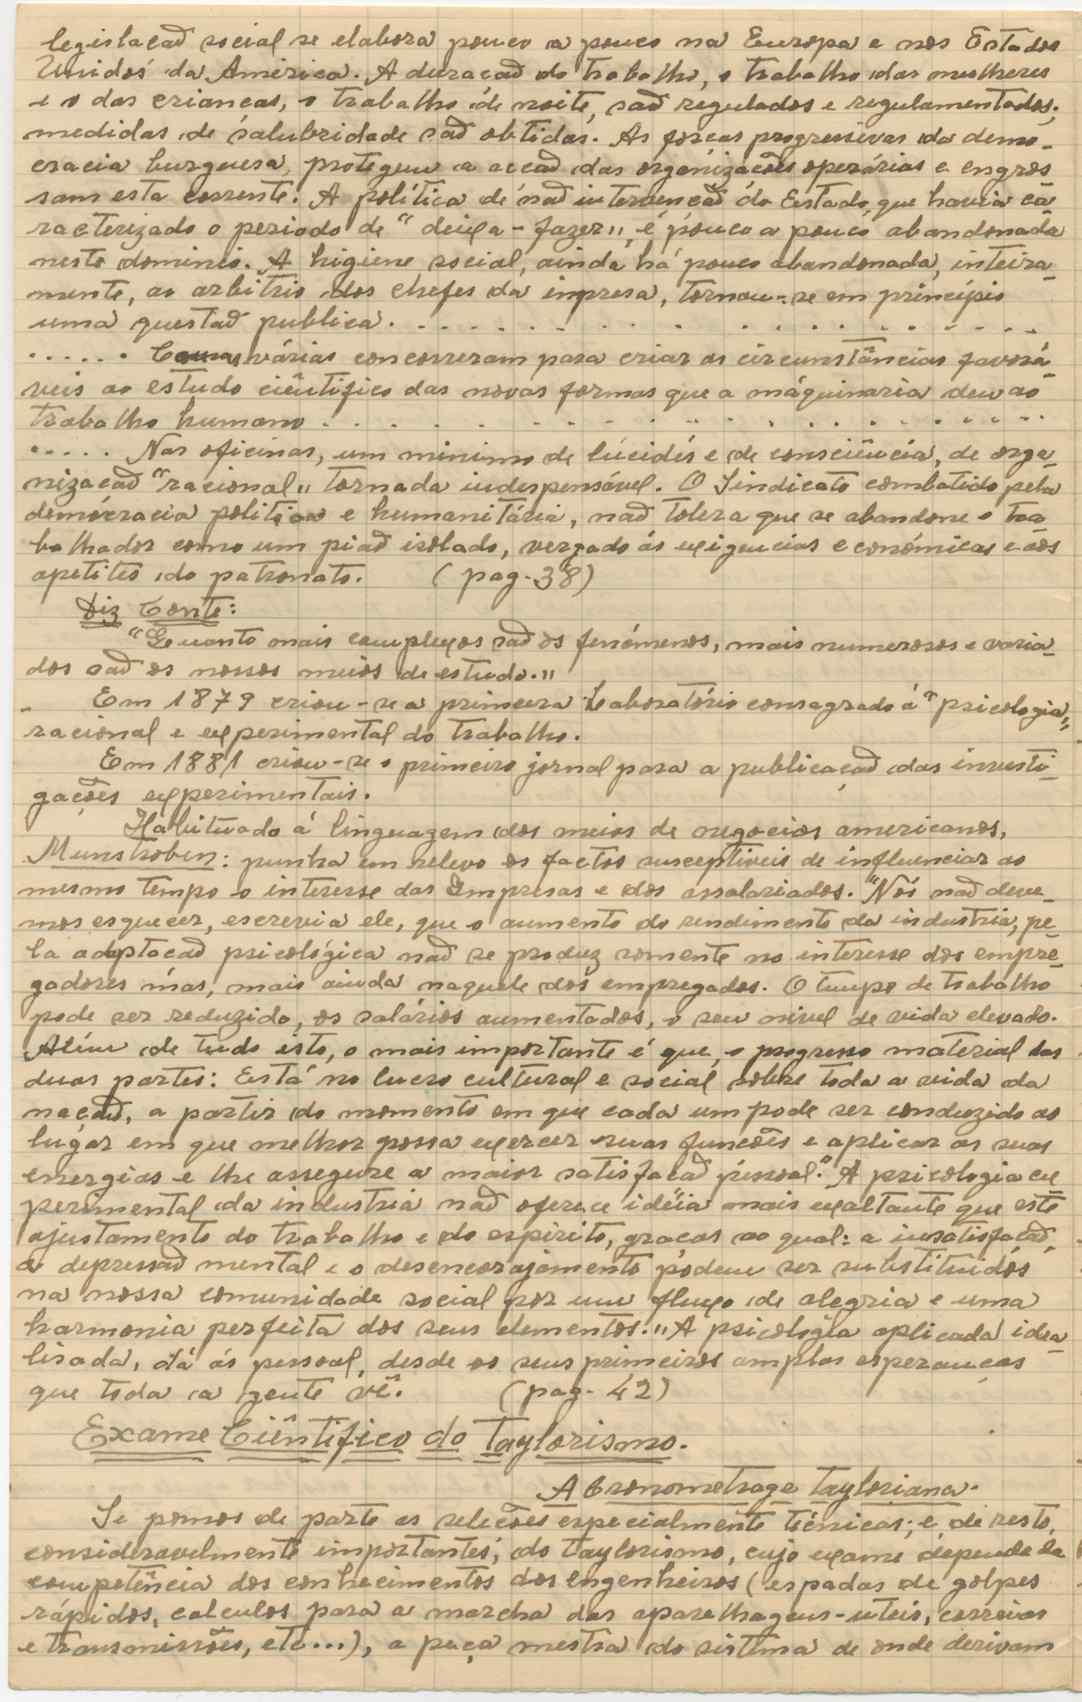 legislacaõ social se elabora pouco a pouco na Europa e nos Estados
Unidos da América. A duracaõ do trabalho, o trabalho das mulheres
e o das criancas, o trabalho de noite, saõ regulados e regulamentados;
medidas de salubridade saõ obtidas. As forcas progressivas da demo-
cracia burguesa, protegem a accaõ das orgánizacoẽs operárias e engros
sam esta corrente. A política de naõ intervencaõ do Estado, que havia ca
racterizado o periodo de "deixa-fazer", é pouco a pouco abandonada
neste dominio. A higiene social, ainda há pouco abandonada, inteira-
mente, ao arbitrio dos chefes da impresa, tornou-se em princípio
uma questaõ publica. . . . . . . . . . . . . . . . .
. . . . . . Causas várias concorreram para criar as circunstâncias favorá-
veis ao estudo ciêntífico das novas formas que a máquinaria deu ao
trabalho humano . . . . . . . . . . . . . . . .
. . . . . Nas oficinas, um minimo de lúcidés e de consciência, de orga-
nizacaõ "racional" tornada indespensável. O Sindicato combatido pela
democracia politica e humanitária, naõ tolera que se abandone o tra
balhador como um piaõ isolado, vergado ás exigencias económicas e aos
apetites do patronato. (pag. 38)
Diz Conte:
"Quanto mais complexos saõ os fenómenos, mais numerosos e varia-
dos saõ os nossos meios de estudo."
Em 1879 criou-se a primeira Laboratório consagrado á "psicologia"
racional e experimental do trabalho.
Em 1881 criou-se o primeiro jornal para a publicaçaõ das investi-
gaçoẽs experimentais.
Habituado á linguagem dos meios de negocios americanos,
Munstroben: punha em relevo os factos susceptíveis de influenciar ao
mesmo tempo o interesse das Impresas e dos assalariados. "Nós naõ deve-
mos esquecer, escrevia ele, que o aumento do rendimento da industria, pe-
la adaptacaõ psicológica naõ se produz somente no interesse dos empre-
gadores más, mais ainda naquele dos empregados. O tempo de trabalho
pode ser reduzido, os salários aumentados, o seu nivel de vida elevado.
Além de tudo isto, o mais importante é que, o progresso material das
duas partes: Está no lucro cultural e social sobre toda a vida da
nacaõ, a partir do momento em que cada um pode ser conduzido ao
lugar em que melhor possa exercer suas funcoẽs e aplicar as suas
energias e lhe assegure a maior satisfacaõ pessoal." A psicologia ex
perimental da industria naõ oferece idéia mais exaltante que este
ajustamento do trabalho e do espirito, gracas ao qual: a insatisfacaõ,
a depressaõ mental e o desencorajamento podem ser substituidos
na nossa comunidade social por um fluxo de alegria e uma
harmonia perfeita dos seus elementos." A psicologia aplicada idea-
lisada, dá ás pessoal, desde os seus primeiros amplas esperanças
que toda a gente vê. (pag. 42)
Exame Ciêntifico do Taylorismo.
A Cronometrage Tayloriana.
Se pomos de parte as selecoẽs especialmente técnicas; e, de resto,
consideravelmente importantes, do taylorismo, cujo exame depende da
competência dos conhecimentos dos engenheiros (espadas de golpes
rápidos, calculos para a marcha das aparelhagens-uteis, correias
e transmissoẽs, etc...), a peça mestra do sistema de onde derivam